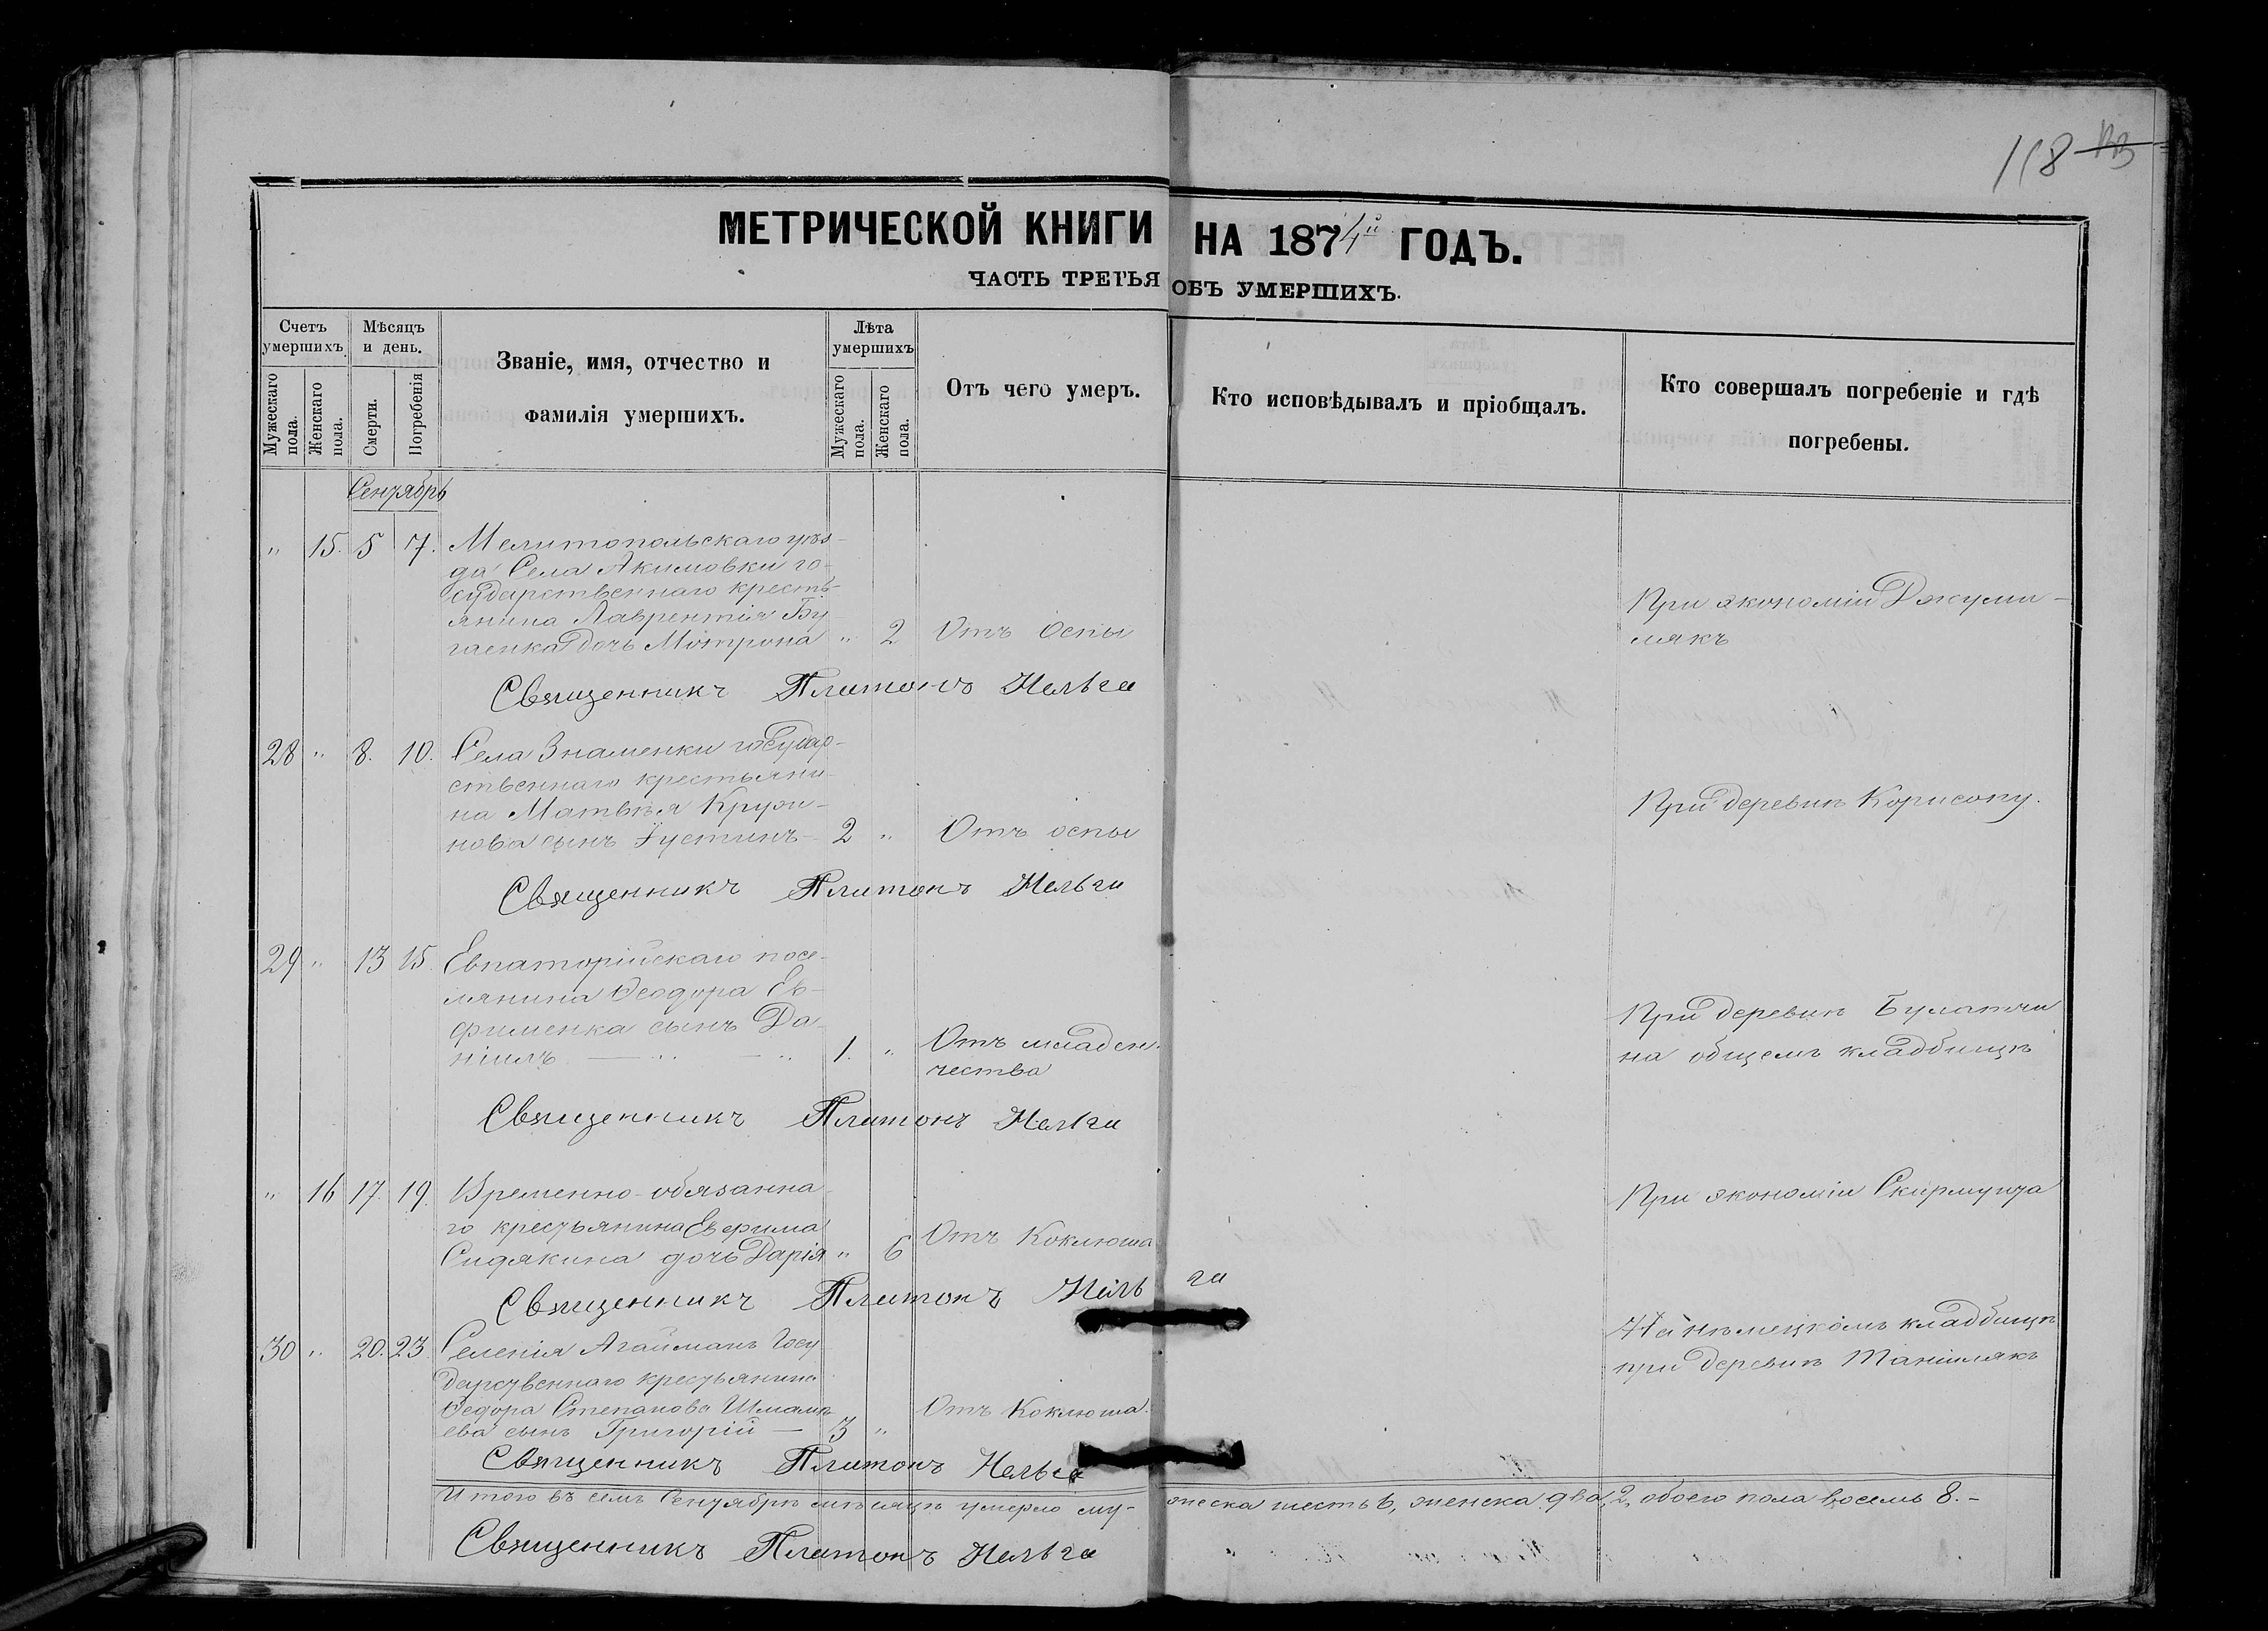 118
МЕТРИЧЕСКОЙ КНИГИ НА 1874й ГОДЪ.
ЧАСТЬ ТРЕТЬЯ ОБЪ УМЕРШИХЪ.
Счетъ умершихъ
Мужескаго пола.
Женскаго пола.
Мѣсяцъ и день.
Смерти.
Погребенія
Званіе, имя, отчество и
фамилія умершихъ.
Лѣта умершихъ
Мужескаго пола.
Женскаго пола.
Отъ чего умеръ.
Кто исповѣдывалъ и пріобщалъ.
Кто совершалъ погребеніе и гдѣ
погребены.
Сентябрь
" 15. 5 7. Мелитопольскаго уѣз-
да Села Акимовки го-
сударственнаго кресть-
янина Лаврентія Бу
гаенка дочь Мотрона " 2 Отъ Оспы
При экономіи Джуми-
лякъ
Священникъ Платонъ Нельга
28 " 8. 10. Села Знаменки государ-
ственнаго крестьяни-
на Матвѣя Кружи-
нова сынъ Іустинъ - 2 " Отъ оспы
При деревнѣ Корисопу.
Священникъ Платонъ Нельга
29 " 13 15. Евпаторійскаго посе-
лянина Ѳеодора Ев-
фименка сынъ Да-
ніилъ 1. " Отъ младен-
чества
При деревнѣ Булатчи
на общемъ кладбищѣ
Священникъ Платонъ Нельга
" 16 17. 19. Временно-обязанна-
го крестьянина Евфима
Сидякина дочь Дарія " 6 Отъ Коклюша
При экономіи Скирмунта
Священникъ Платонъ Нельга
30 " 20. 23. Селенія Агайманъ Госу
дарственнаго крестьянина
Ѳедора Степанова
ева сынъ Григорій - 3 " Отъ Коклюша.
На нѣмецкомъ кладбищѣ
при деревнѣ
Священникъ Платонъ Нельга
Итого въ семъ Сентябрѣ мѣсяцѣ умерло му-жеска шесть 6, женска два, 2, обоего пола восемь 8. -
Священникъ Платонъ Нельга